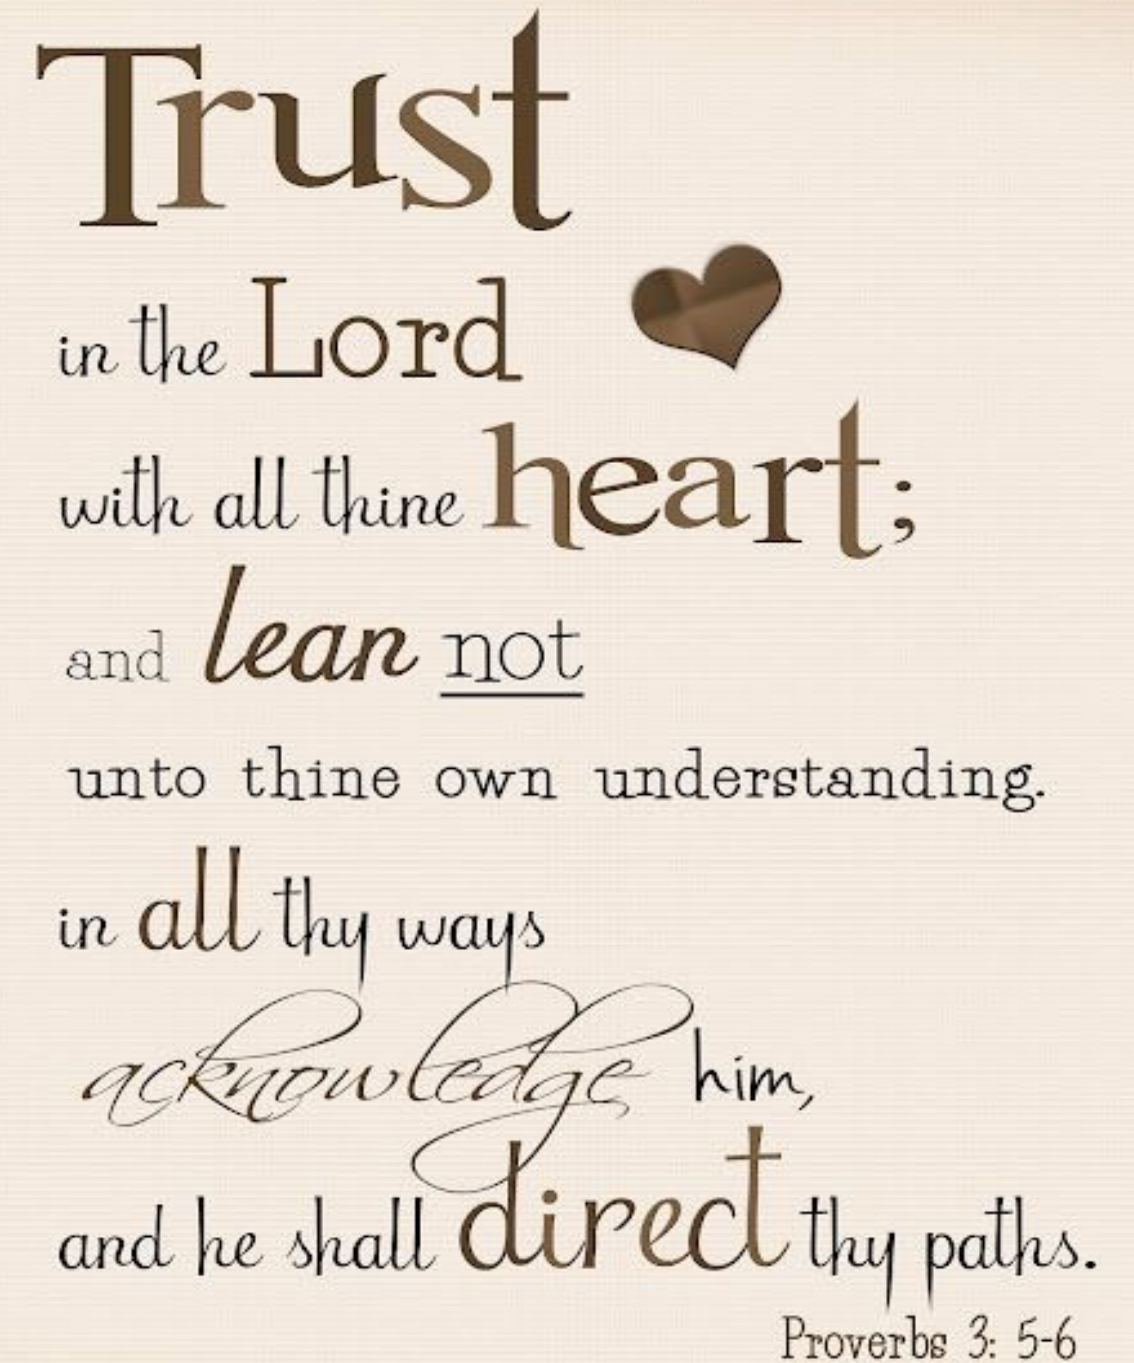 Trust
in the Lord
with all thine heart;
and lean not
unto thine own understanding.
in all thy ways
acknowledge him,
and he shall direct thy paths.
Proverbs 3: 5-6